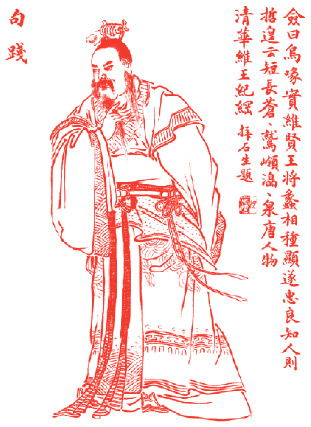 僉曰鳥喙實維賢王將蠡相種顯遂忠良知人則
哲遑云短長蒼〻鷲嶺滔〻泉唐人物
清華維王紀綱 拜石生題
句踐